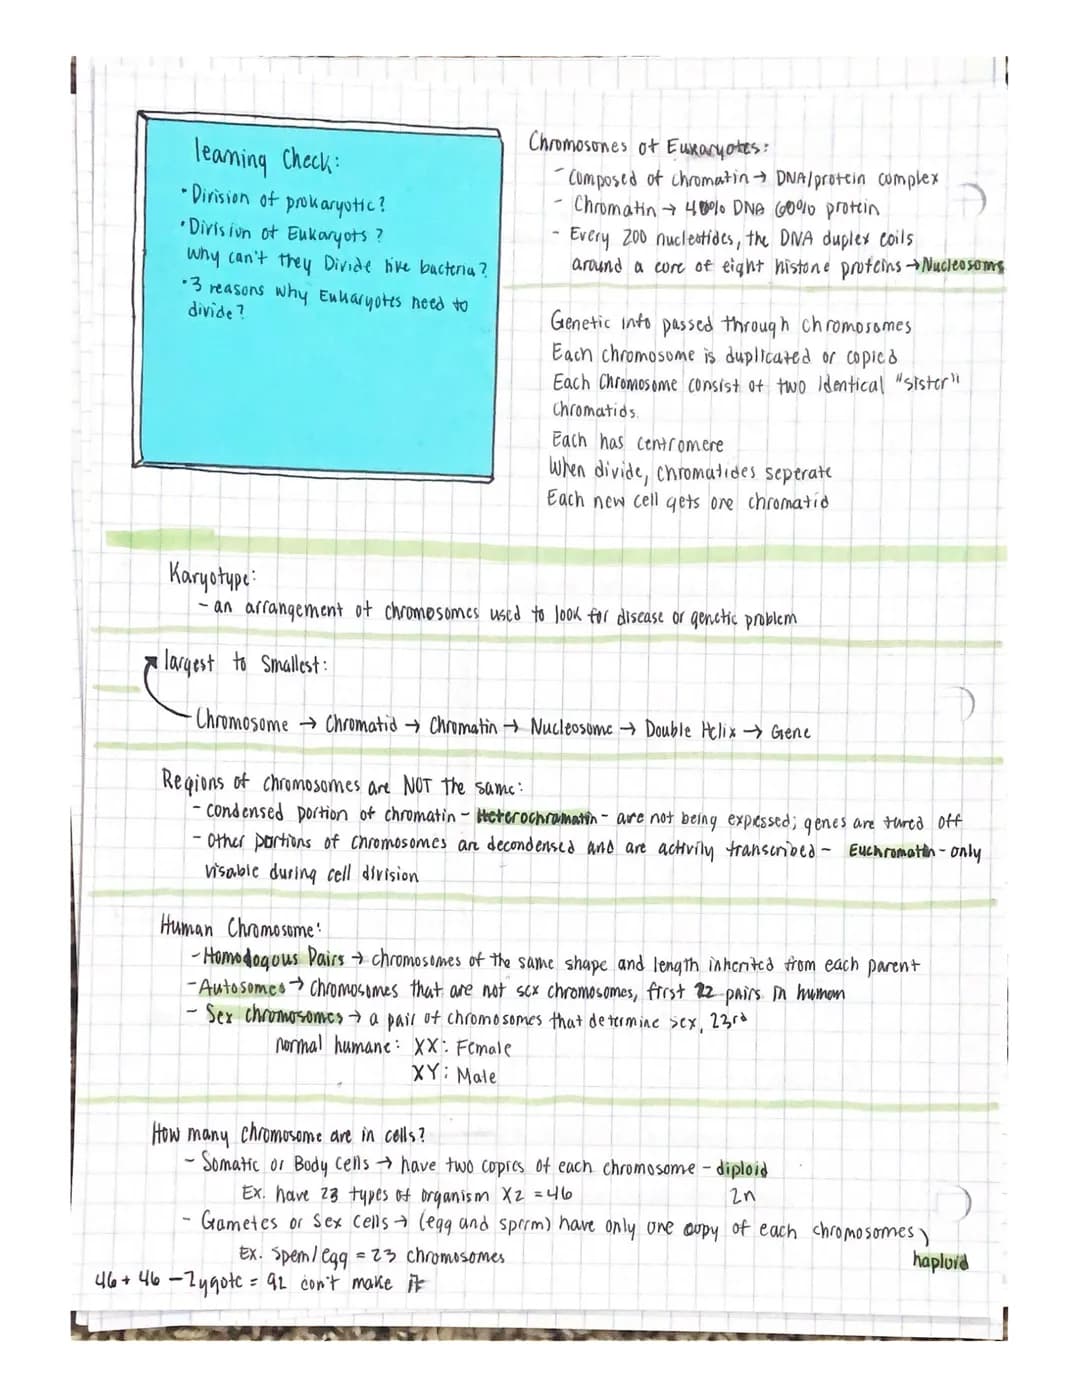 learning Check:
• Division of prokaryotic?
• Division of Eukaryots?
Why can't they Divide like bacteria?
• 3 reasons why Eukaryotes need to
divide?
Chromosones of Eukaryotes:
- Composed of chromatin → DNA/protein complex
- Chromatin → 40% DNA 60% protein
- Every 200 nucleotides, the DNA duplex coils
around a core of eight histone proteins → Nucleosoms
Genetic info passed through chromosomes
Each chromosome is duplicated or copied
Each Chromosome consist of two identical "sister"
Chromatids.
Each has centromere
When divide, chromatides seperate
Each new cell gets one chromatid
Karyotype:
- an arrangement of chromosomes used to look for disease or genetic problem
largest to Smallest:
Chromosome → Chromatid → Chromatin → Nucleosome → Double Helix → Gene
Regions of chromosomes are NOT the same:
- condensed portion of chromatin - Heterochromatin - are not being expressed; genes are tured off
- Other portions of chromosomes are decondensed and are activily transcribed - Euchromatin - only
visable during cell division
Human Chromosome:
- Homodogous Pairs → chromosomes of the same shape and length inherited from each parent
- Autosomes → chromosomes that are not sex chromosomes, first 22 pairs in human
- Sex chromosomes → a pair of chromosomes that determine sex, 23rd
normal humane: XX: Female
XY: Male
How many chromosome are in cells?
- Somatic or Body Cells → have two copies of each chromosome - diploid
Ex. have 23 types of organism X2 = 46 2n
- Gametes or Sex Cells → (egg and sperm) have only one copy of each chromosomes
Ex. Spem/egg = 23 chromosomes haploid
46 + 46 - Zygote = 92 don't make it